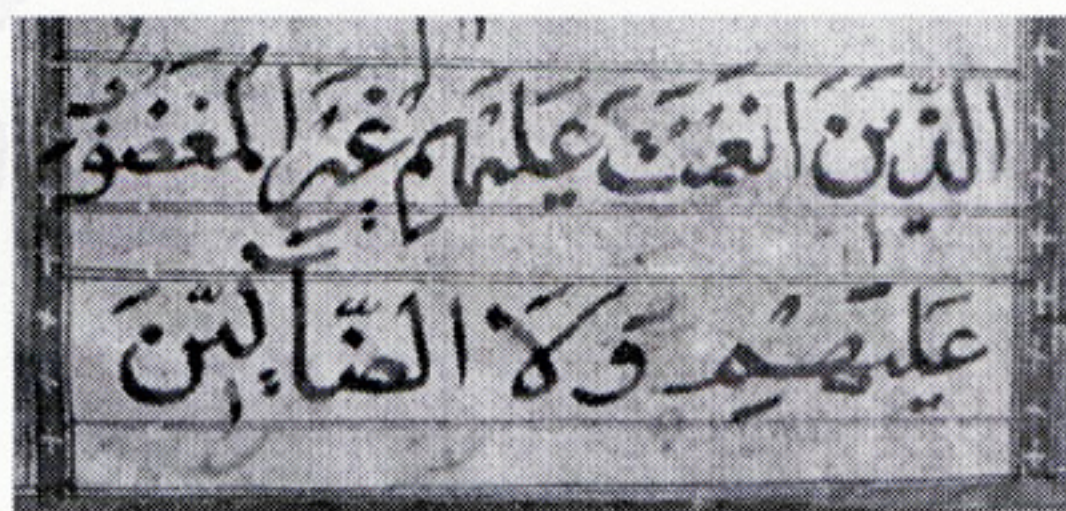 الذِّينَ انعَمتَ عَلَيهِم غَيرِ المَغضُوب
عَلَيهِم وَلَا الضَّالِّينَ